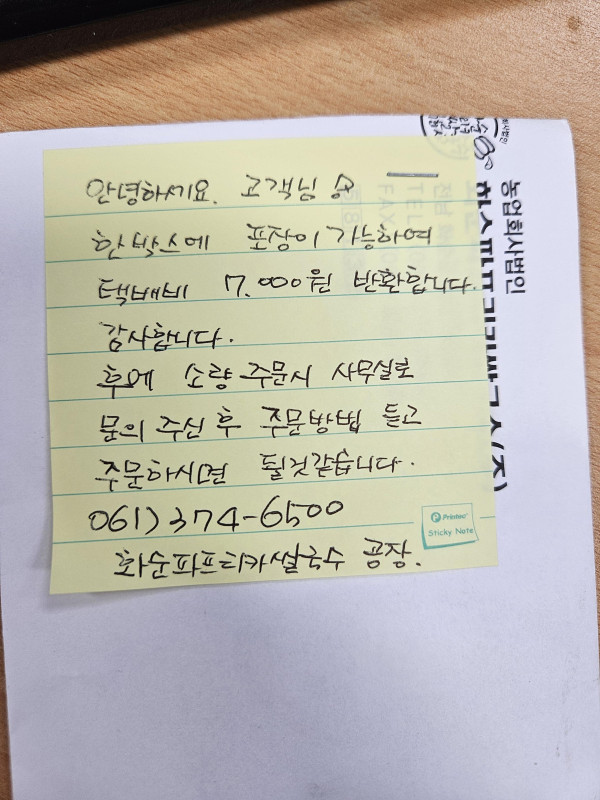 안녕하세요. 고객님
한박스에 포장이 가능하여
택배비 7.000원 반환합니다.
감사합니다.
후에 소량 주문시 사무실로
문의 주신 후 주문방법 듣고
주문하시면 될것같습니다.
061) 374-6500
화순파프리카쌀국수 공장.
Printec
Sticky Note
농업회사법인